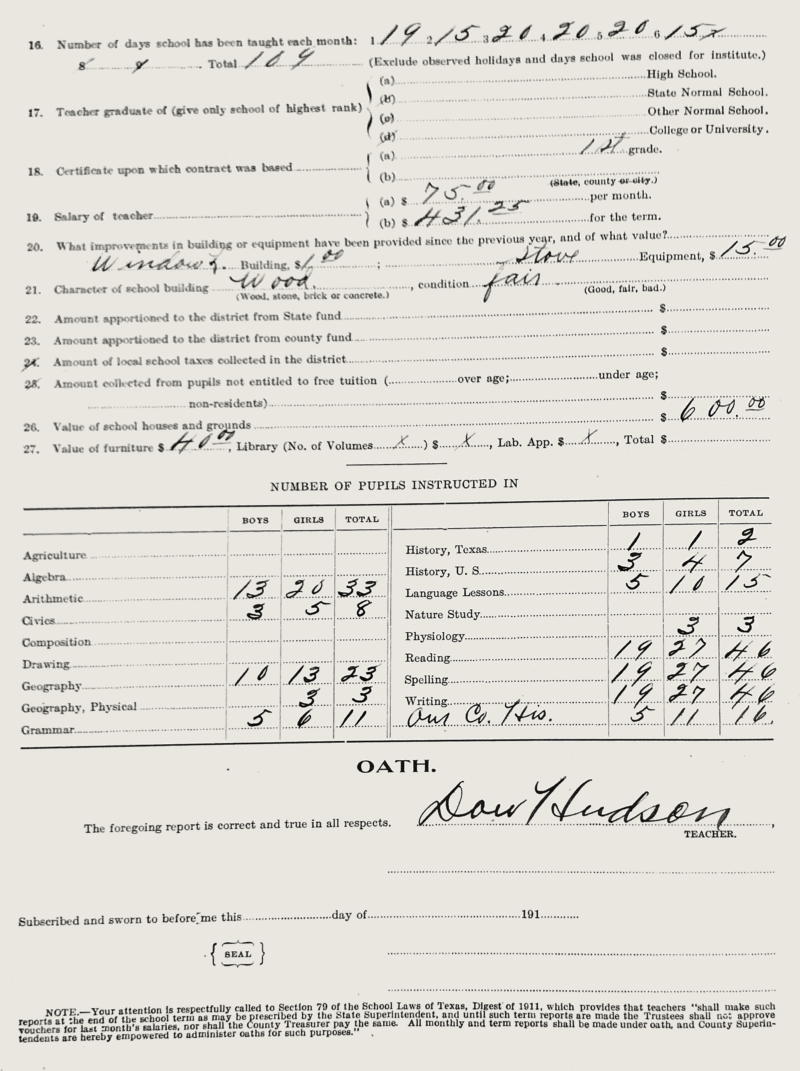 16. Number of days school has been taught each month: 1 19 2 15 3 20 4 20 5 20 6 15
8 Total 109 (Exclude observed holidays and days school was closed for institute.)
17. Teacher graduate of (give only school of highest rank)
(a) High School.
(b) State Normal School.
(c) Other Normal School.
(d) College or University.
18. Certificate upon which contract was based
(a) 1st grade.
(b)
(State, county or city.)
19. Salary of teacher
(a) $ 75.00 per month.
(b) $ 431.25 for the term.
20. What improvements in building or equipment have been provided since the previous year, and of what value?
Windows. Building, $1.00; Stove Equipment, $15.00
21. Character of school building Wood, condition fair
(Wood, stone, brick or concrete.) (Good, fair, bad.)
22. Amount apportioned to the district from State fund $
23. Amount apportioned to the district from county fund $
24. Amount of local school taxes collected in the district $
25. Amount collected from pupils not entitled to free tuition ( over age; under age;
non-residents) $
26. Value of school houses and grounds $ 600.00
27. Value of furniture $ 40.00, Library (No. of Volumes X ) $ X, Lab. App. $ X, Total $
NUMBER OF PUPILS INSTRUCTED IN
BOYS GIRLS TOTAL BOYS GIRLS TOTAL
Agriculture
Algebra
Arithmetic 13 20 33
Civics 3 5 8
Composition
Drawing
Geography 10 13 23
Geography, Physical 3 3
Grammar 5 6 11
History, Texas 1 1 2
History, U. S. 3 4 7
Language Lessons 5 10 15
Nature Study
Physiology 3 3
Reading 19 27 46
Spelling 19 27 46
Writing 19 27 46
Our Co. His. 5 11 16.
OATH.
The foregoing report is correct and true in all respects. Dow Hudson,
TEACHER.
Subscribed and sworn to before me this day of 191
SEAL
NOTE.—Your attention is respectfully called to Section 79 of the School Laws of Texas, Digest of 1911, which provides that teachers "shall make such
reports at the end of the school term as may be prescribed by the State Superintendent, and until such term reports are made the Trustees shall not approve
vouchers for last month's salaries, nor shall the County Treasurer pay the same. All monthly and term reports shall be made under oath, and County Superin-
tendents are hereby empowered to administer oaths for such purposes."